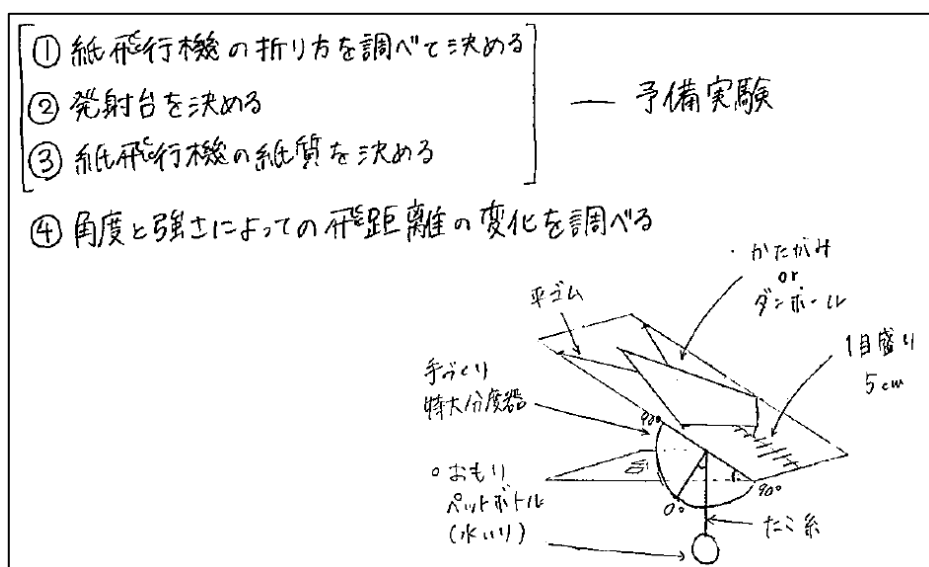 ① 紙飛行機の折り方を調べて決める
② 発射台を決める
③ 紙飛行機の紙質を決める
― 予備実験
④ 角度と強さによっての飛距離の変化を調べる
・かたがみ
or
ダンボール
平ゴム
1目盛り
5cm
手づくり
特大分度器
90°
台
0°
90°
○おもり
ペットボトル
(水いり)
たこ糸